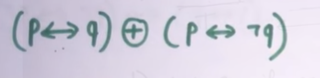 (p↔q) ⊕ (p↔¬q)